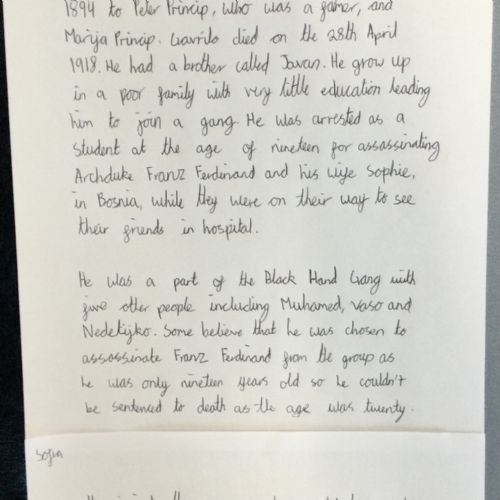 1894 to Peter Princip, who was a famer, and
Marija Princip. Gavrilo died on the 28th April
1918. He had a brother called Jovan. He grow up
in a poor family with very little education leading
him to join a gang. He was arrested as a
student at the age of nineteen for assassinating
Archduke Franz Ferdinand and his wife Sophie,
in Bosnia, while they were on their way to see
their friends in hospital.
He was a part of the Black Hand Gang with
five other people including Muhamed, Vaso and
Nedeljko. Some believe that he was chosen to
assossinate Franz Ferdinand from the group as
he was only nineteen years old so he couldn't
be sentenced to death as the age was twenty.
Sofia